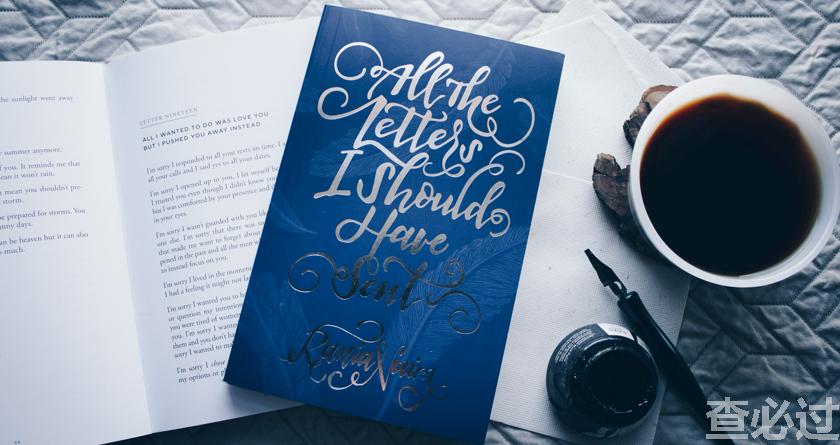 he sunlight went away
e summer anymore.
f you. It reminds me that
ean it won't rain.
t mean you shouldn't pre-
storm.
e prepared for storms. You
nny days.
an be heaven but it can also
s much.
64
LETTER NINETEEN
ALL I WANTED TO DO WAS LOVE YOU
BUT I PUSHED YOU AWAY INSTEAD
I'm sorry I responded to all your texts on time. I
all your calls and I said yes to all your dates.
I'm sorry I opened up to you, I let myself
I trusted you even though I didn't know
but I was comforted by your presence and
in your eyes.
I'm sorry I wasn't guarded with you
one else. I'm sorry that there was
that made me want to forget about
pened in the past and all the men
to instead focus on you.
I'm sorry I lived in the moment
I had a feeling it might not
I'm sorry I wanted you to
or question my intention
you were tired of women
them and you don't
sorry I wanted to
I'm sorry I
my options or
All the
Letters
I Should
Have
Sent
Rania Naim
查必过